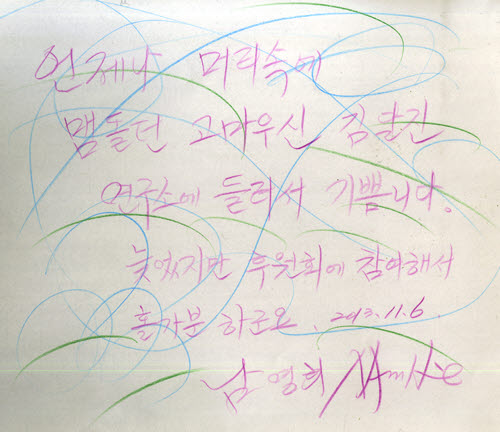 언제나 머리속에
맴돌던 고마우신 김달진
연구소에 들러서 기쁩니다.
늦었지만 후원회에 참여해서
홀가분 하군요. 2013.11.6.
남영희